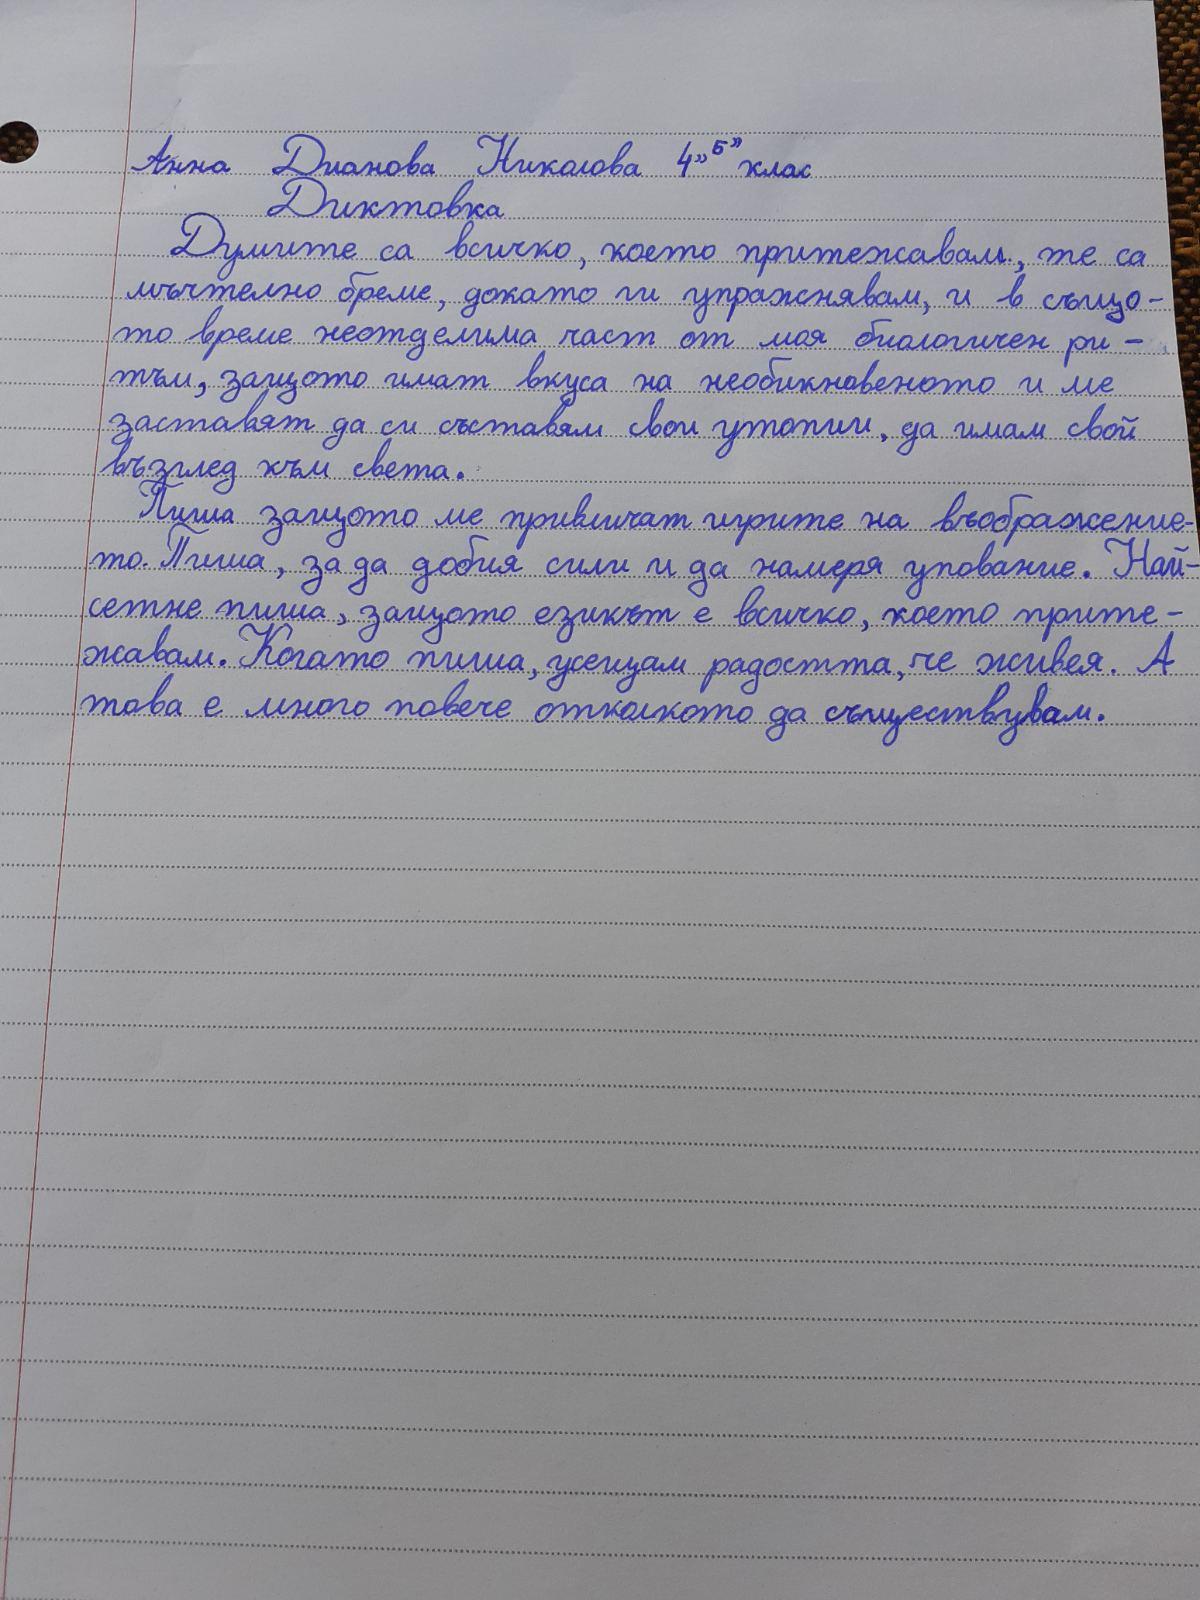 Анна Дианова Николова 4 „Б” клас
Диктовка
Думите са всичко, което притежавам, те са
мъчително бреме, докато ги упражнявам, и в също-
то време неотделима част от моя биологичен ри-
тъм, защото имат вкуса на необикновеното и ме
заставят да си съставям свои утопии, да имам свой
възглед към света.
Пиша защото ме привличат игрите на въображение-
то. Пиша, за да добия сили и да намеря упование. Най-
сетне пиша, защото езикът е всичко, което прите-
жавам. Когато пиша, усещам радостта, че живея. А
това е много повече отколкото да съществувам.